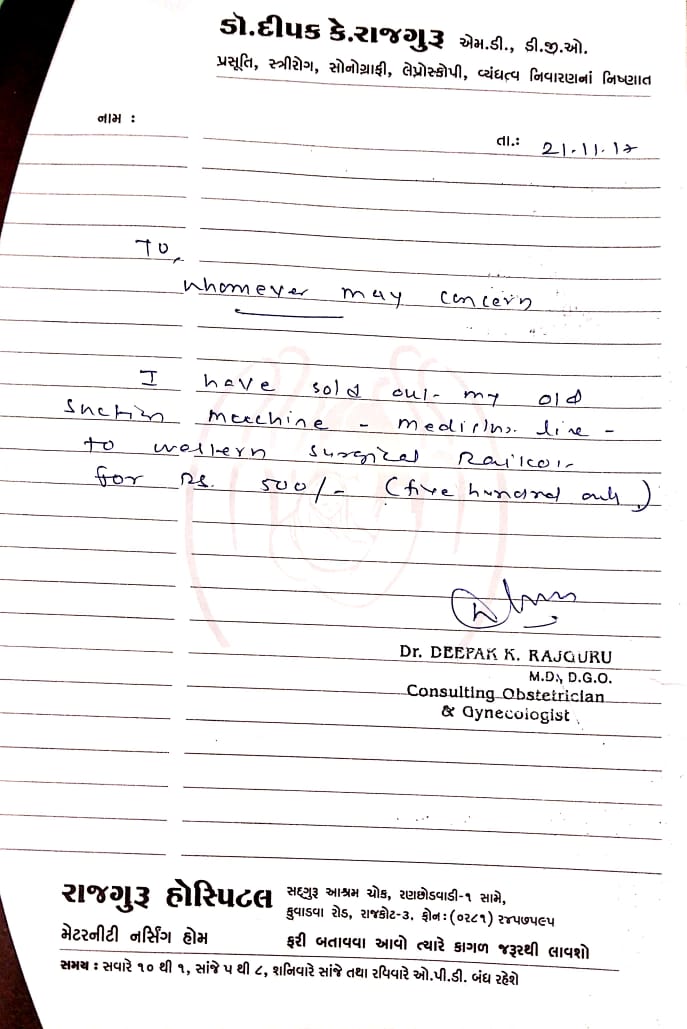 ડૉ.દીપક કે.રાજગુરુ એમ.ડી., ડી.જી.ઓ.
પ્રસૂતિ, સ્ત્રીરોગ, સોનોગ્રાફી, લેપ્રોસ્કોપી, વ્યંધત્વ નિવારણનાં નિષ્ણાત
નામ :
તા.: 21.11.17
To,
whomever may concern
I have sold out my old
Suction machine - line -
to western surgical Rajkot
for Rs. 500/- (five hundred only)
Dr. DEEPAK K. RAJGURU
M.D., D.G.O.
Consulting Obstetrician
& Gynecologist
રાજગુરુ હોસ્પિટલ
મેટરનીટી નર્સિંગ હોમ
સદ્દગુરુ આશ્રમ ચોક, રણછોડવાડી-૧ સામે,
કુવાડવા રોડ, રાજકોટ-૩. ફોન:(૦૨૮૧) ૨૪૫૭૫૯૫
ફરી બતાવવા આવો ત્યારે કાગળ જરૂરથી લાવશો
સમય : સવારે ૧૦ થી ૧, સાંજે ૫ થી ૮, શનિવારે સાંજે તથા રવિવારે ઓ.પી.ડી. બંધ રહેશે